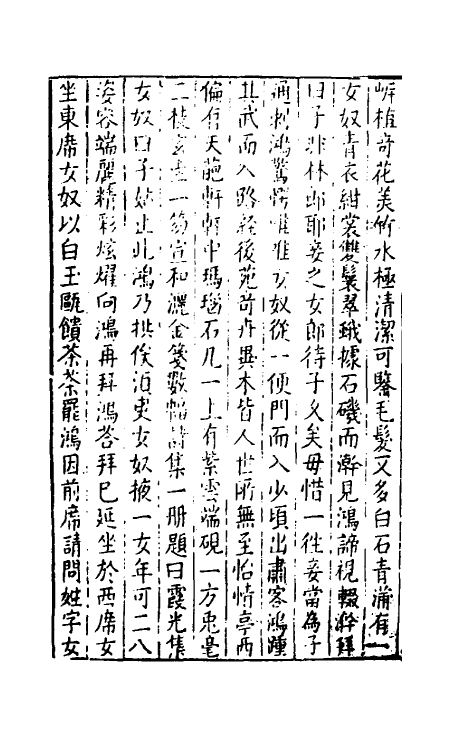 岍植奇花美竹水極清潔可鑒毛髮又多白石青蒲有一
女奴青衣紺裳雙鬟翠翹據石磯而澣見鴻諦視輟澣拜
曰子非林郎耶妾之女郎待子久矣毋惜一徃妾當為子
通刺鴻驚愕唯唯女奴從一便門而入少頃出肅客鴻踵
其武而入路経後苑奇卉異木皆人世所無至怡情亭西
偏有天葩軒軒中瑪瑙石几一上有紫雲端硯一方兎毫
二枝玄圭一笏宣和灑金箋數幅詩集一册題曰霞光集
女奴曰子姑止此鴻乃拱俟須臾女奴掖一女年可二八
姿容端麗精彩炫燿向鴻再拜鴻荅拜已延坐於西席女
坐東席女奴以白玉甌饋茶茶罷鴻因前席請問姓字女